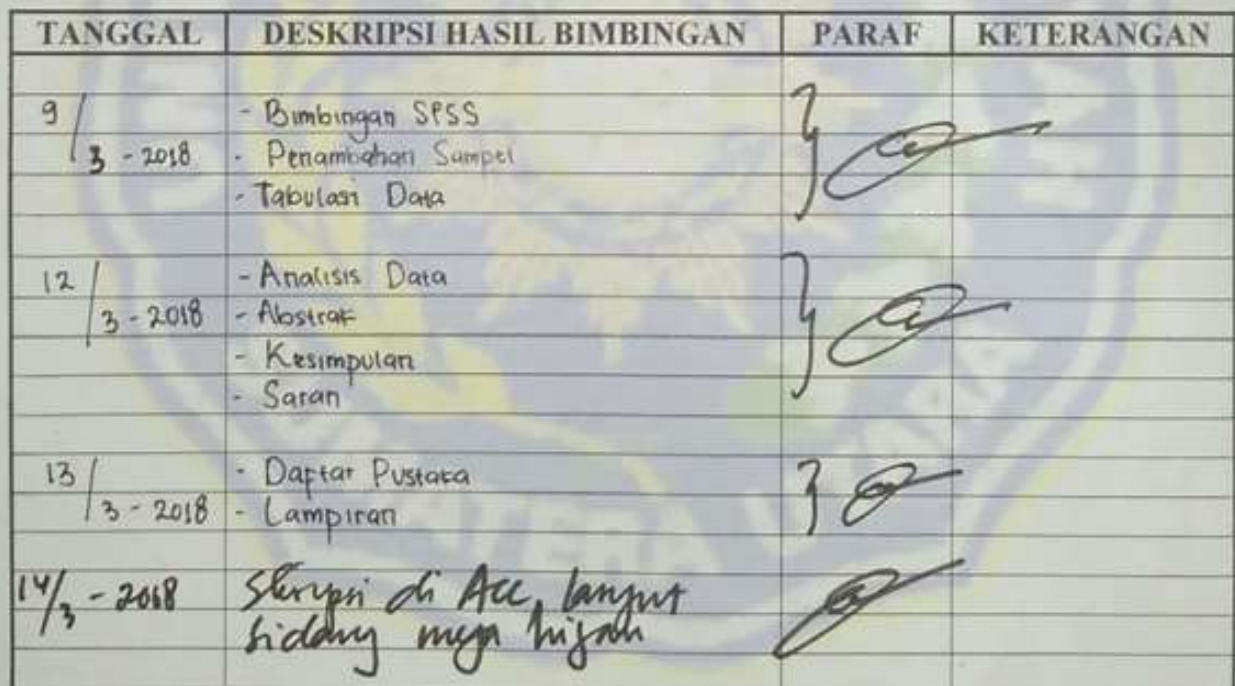 TANGGAL DESKRIPSI HASIL BIMBINGAN PARAF KETERANGAN
9/3 - 2018 - Bimbingan SPSS
- Penambahan Sampel
- Tabulasi Data
12/3 - 2018 - Analisis Data
- Abstrak
- Kesimpulan
- Saran
13/3 - 2018 - Daftar Pustaka
- Lampiran
14/3 - 2018 Skripsi di Acc, lanjut
sidang meja hijau
SUMATERA UTARA